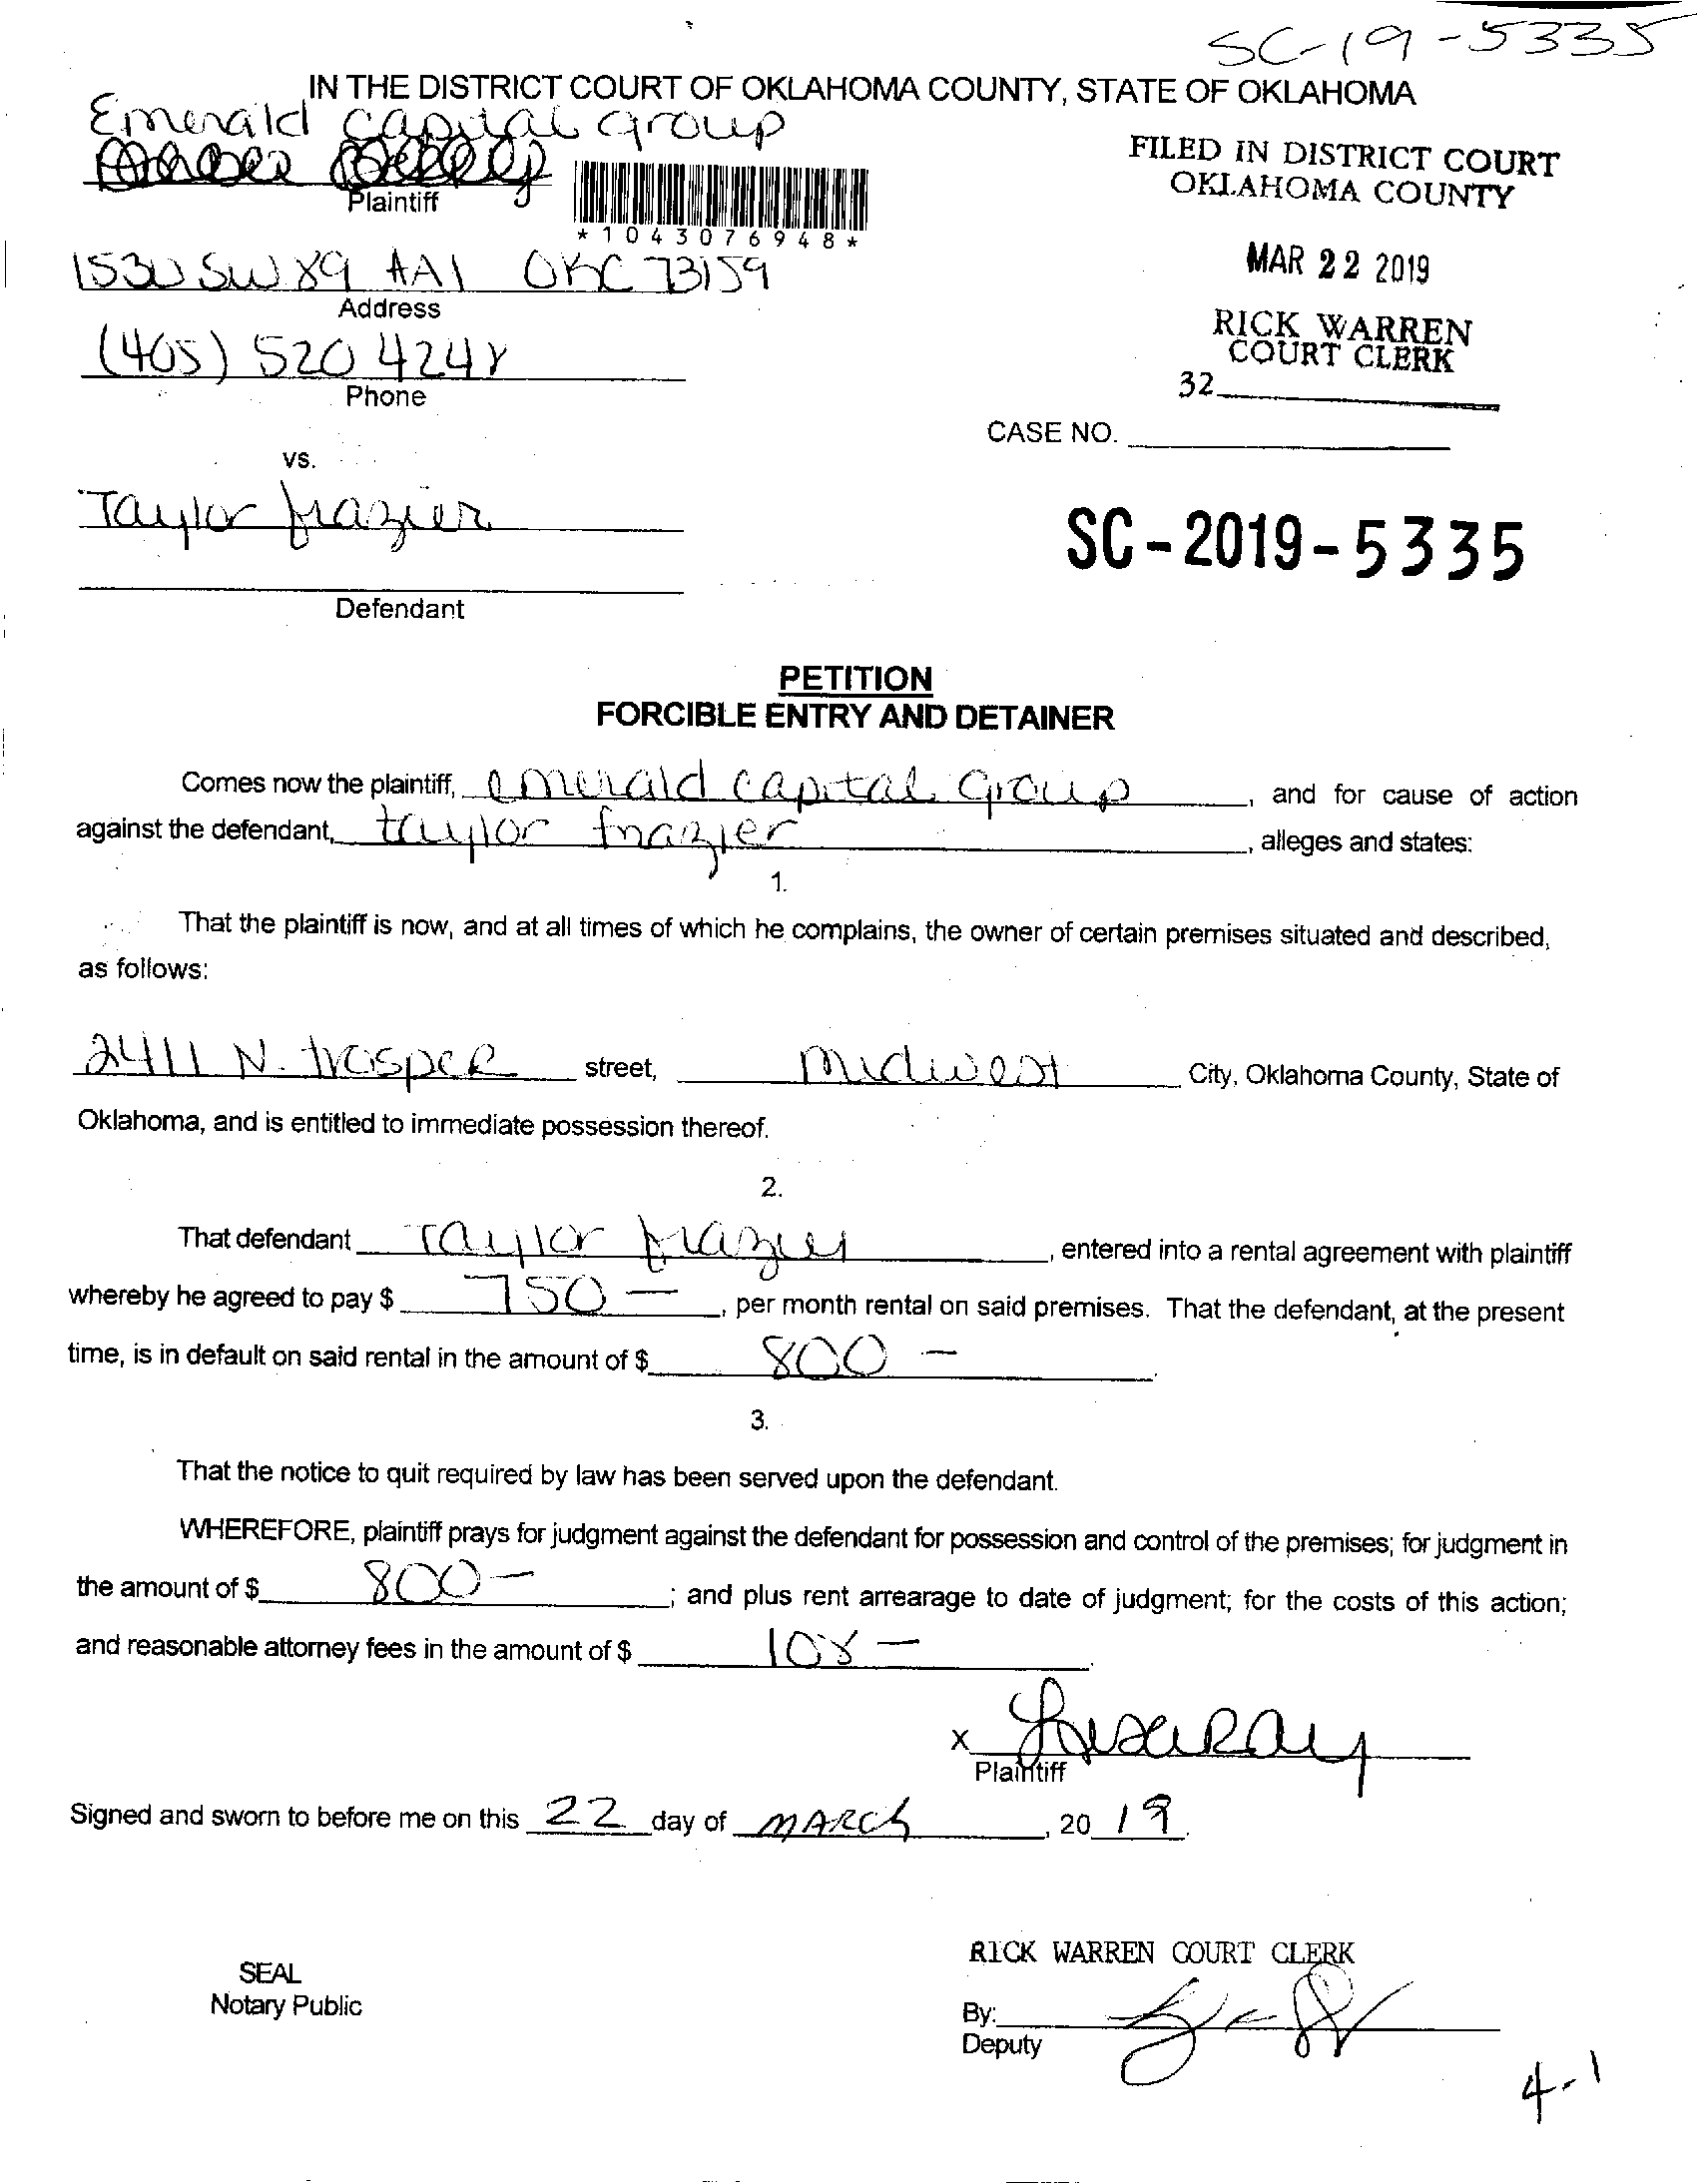 SC-19-5335
IN THE DISTRICT COURT OF OKLAHOMA COUNTY, STATE OF OKLAHOMA
Emerald Capital Group
Plaintiff
*1043076948*
FILED IN DISTRICT COURT
OKLAHOMA COUNTY
MAR 22 2019
RICK WARREN
COURT CLERK
32
1530 SW 89 #A1 OKC 73159
Address
(405) 520 4248
Phone
CASE NO.
vs.
Taylor frazier
SC-2019-5335
Defendant
PETITION
FORCIBLE ENTRY AND DETAINER
Comes now the plaintiff, emerald capital Group, and for cause of action
against the defendant, taylor frazier, alleges and states:
1.
That the plaintiff is now, and at all times of which he complains, the owner of certain premises situated and described,
as follows:
2411 N. trosper street, Midwest City, Oklahoma County, State of
Oklahoma, and is entitled to immediate possession thereof.
2.
That defendant Taylor frazier, entered into a rental agreement with plaintiff
whereby he agreed to pay $ 750 -, per month rental on said premises. That the defendant, at the present
time, is in default on said rental in the amount of $ 800 -.
3.
That the notice to quit required by law has been served upon the defendant.
WHEREFORE, plaintiff prays for judgment against the defendant for possession and control of the premises; for judgment in
the amount of $ 800 -; and plus rent arrearage to date of judgment; for the costs of this action;
and reasonable attorney fees in the amount of $ 108 -.
X
Plaintiff
Signed and sworn to before me on this 22 day of MARCh, 20 19.
RICK WARREN COURT CLERK
SEAL
Notary Public
By:
Deputy
4-1